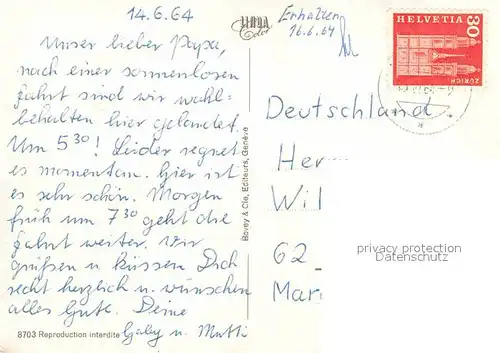 14.6.64
Unser lieber Papa,
nach einer sonnenlosen
Fahrt sind wir wohl-
behalten hier gelandet.
Um 5 30! Leider regnet
es momentan. Hier ist
es sehr schön. Morgen
früh um 7 30 geht die
Fahrt weiter. Wir
grüßen u küssen Dich
recht herzlich u. wünschen
alles Gute. Deine
Gaby u. Mutti
8703 Reproduction interdite
Color
Bovey & Cie, Editeurs, Genève
Erhalten
16.6.64
HELVETIA
30
ZÜRICH
Deutschland.
Her
Wil
62
Mar
privacy protection
Datenschutz